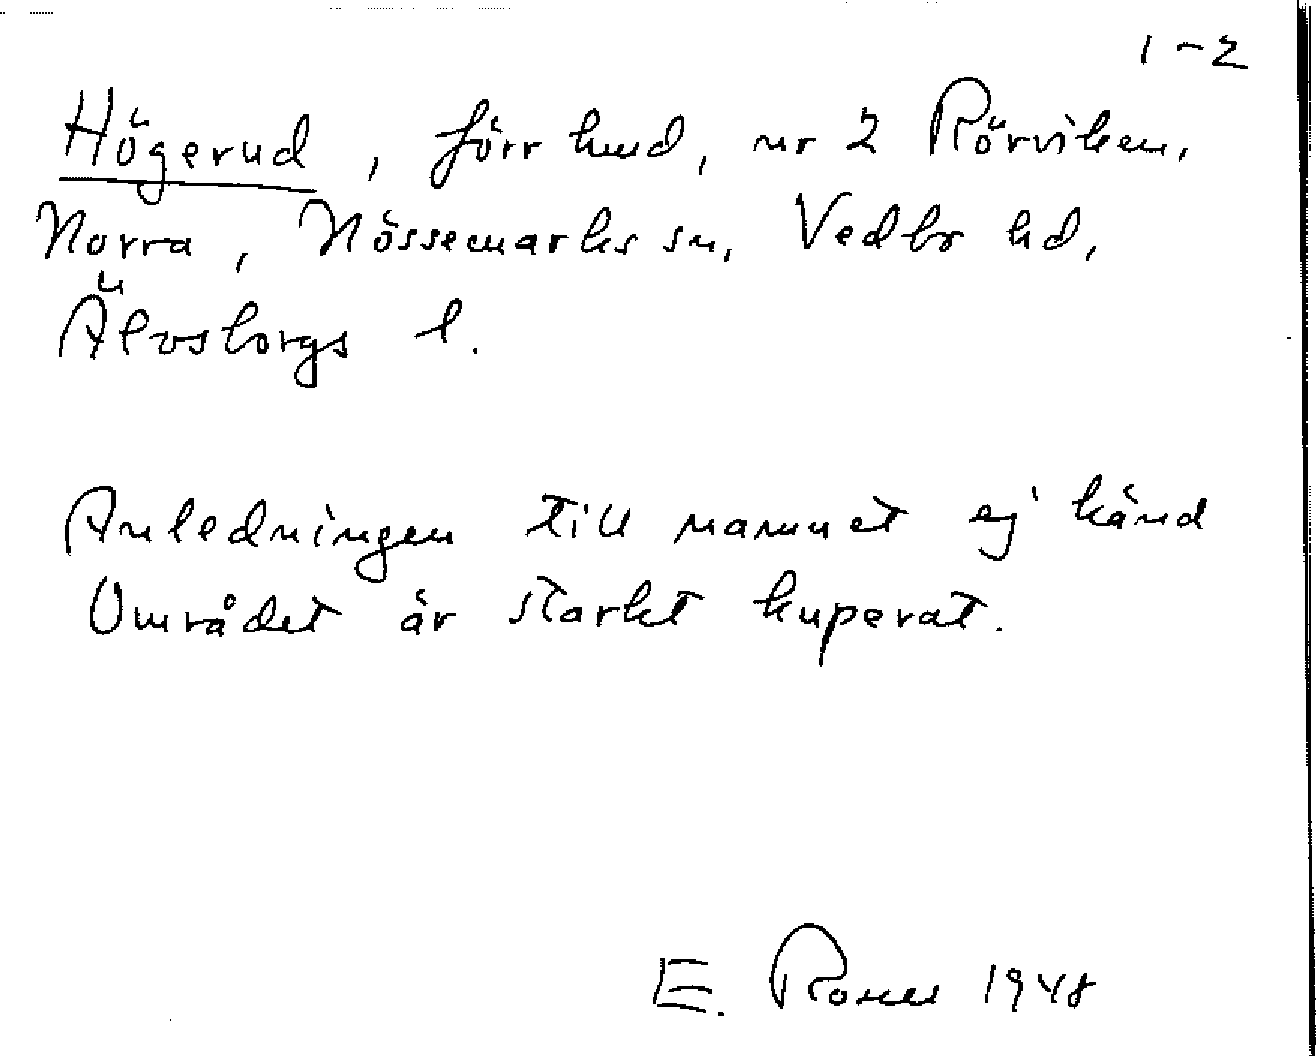 1-2
Högerud, förr hmd, nr 2 Rörviken,
Norra, Nössemarks sn, Vedbo hd,
Älvsborgs l.
Anledningen till namnet ej känd
Området är starkt kuperat.
E. 1948